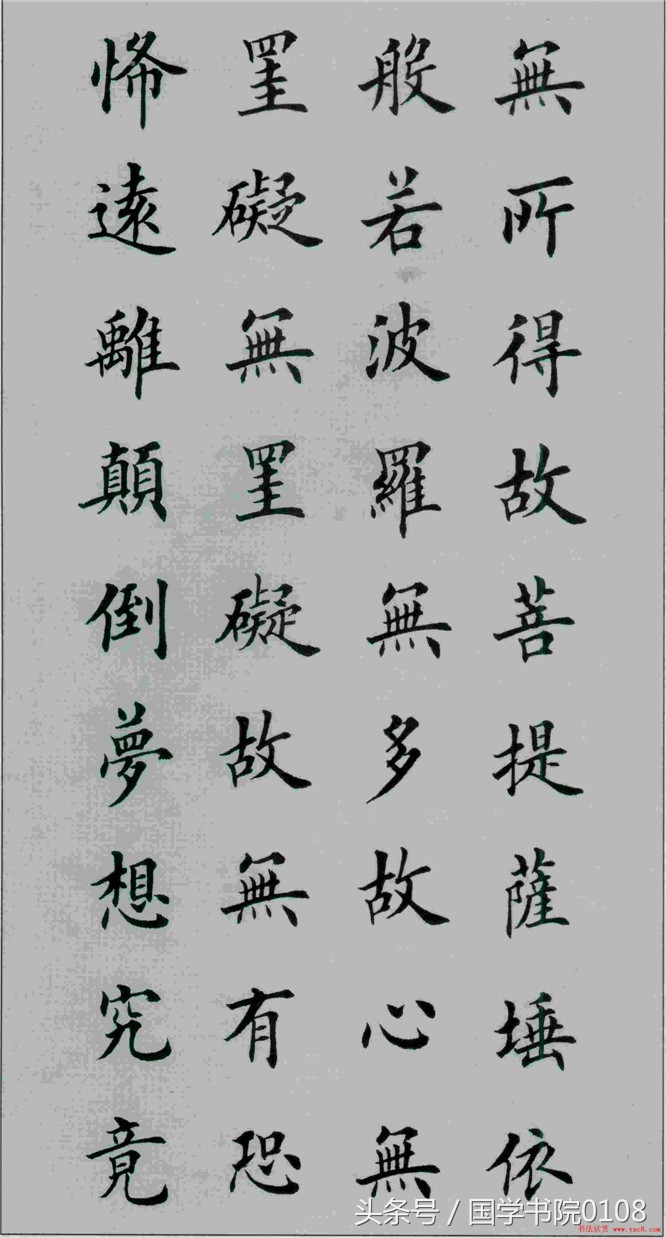 無所得故菩提薩埵依
般若波羅無多故心無
罣礙無罣礙故無有恐
悕遠離顛倒夢想究竟
头条号 / 国学书院0108
书法欣赏 www.yac8.com